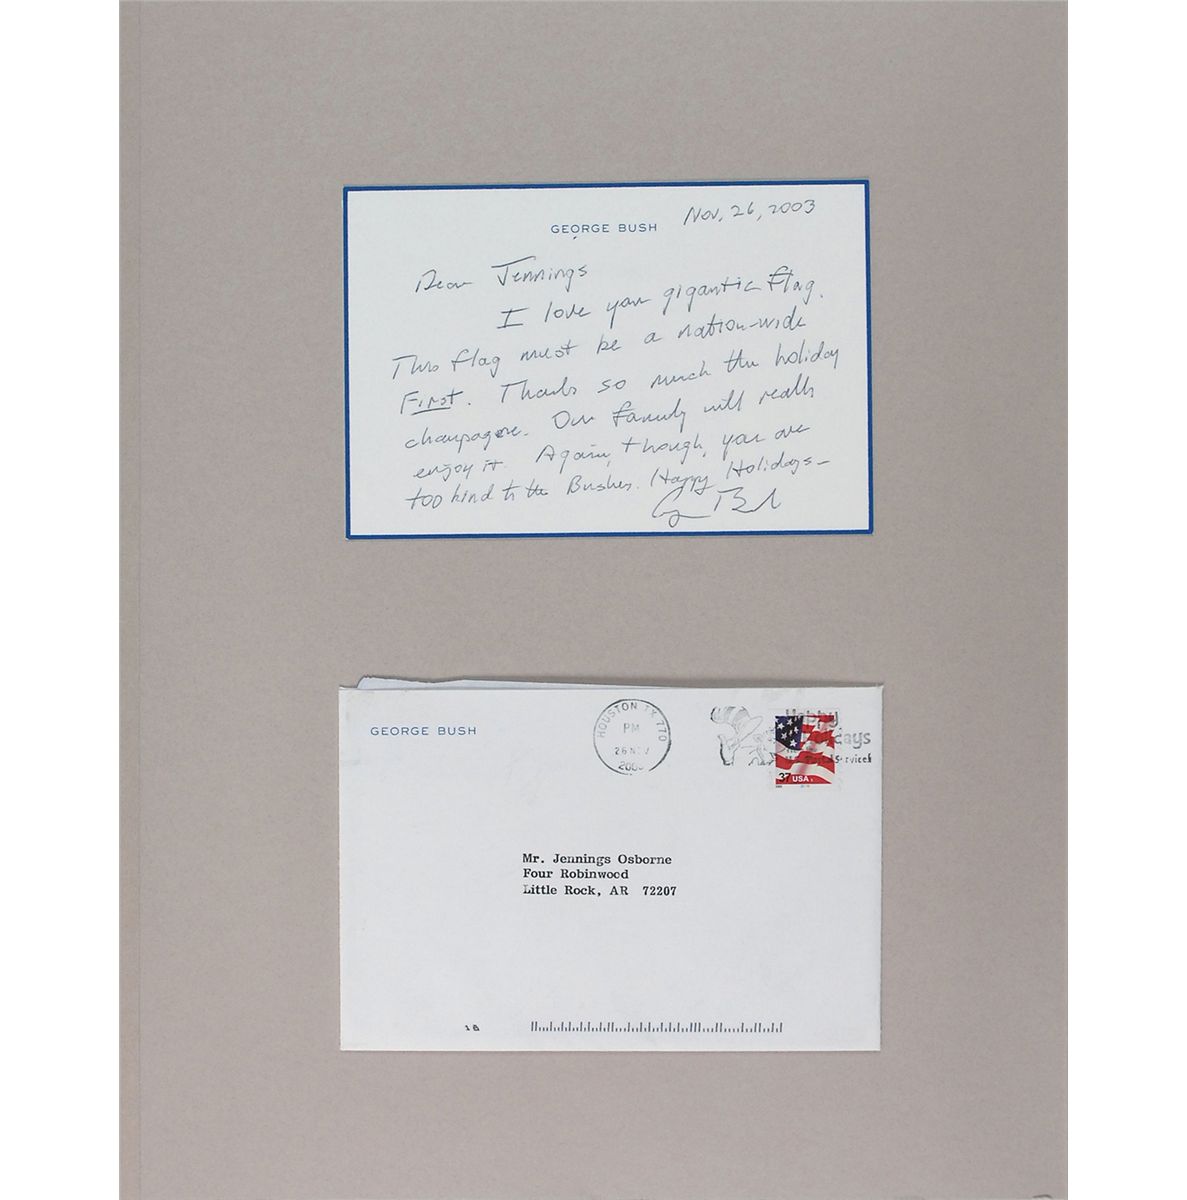 GEORGE BUSH
Nov. 26, 2003
Dear Jennings
I love your gigantic flag.
This flag must be a nation-wide
First. Thanks so much the holiday
champagne. Our family will really
enjoy it. Again, though, you are
too kind to the Bushes. Happy Holidays-
GEORGE BUSH
HOUSTON TX 770
PM
26 NOV
200
Happy
Holidays
37 USA
Mr. Jennings Osborne
Four Robinwood
Little Rock, AR 72207
18